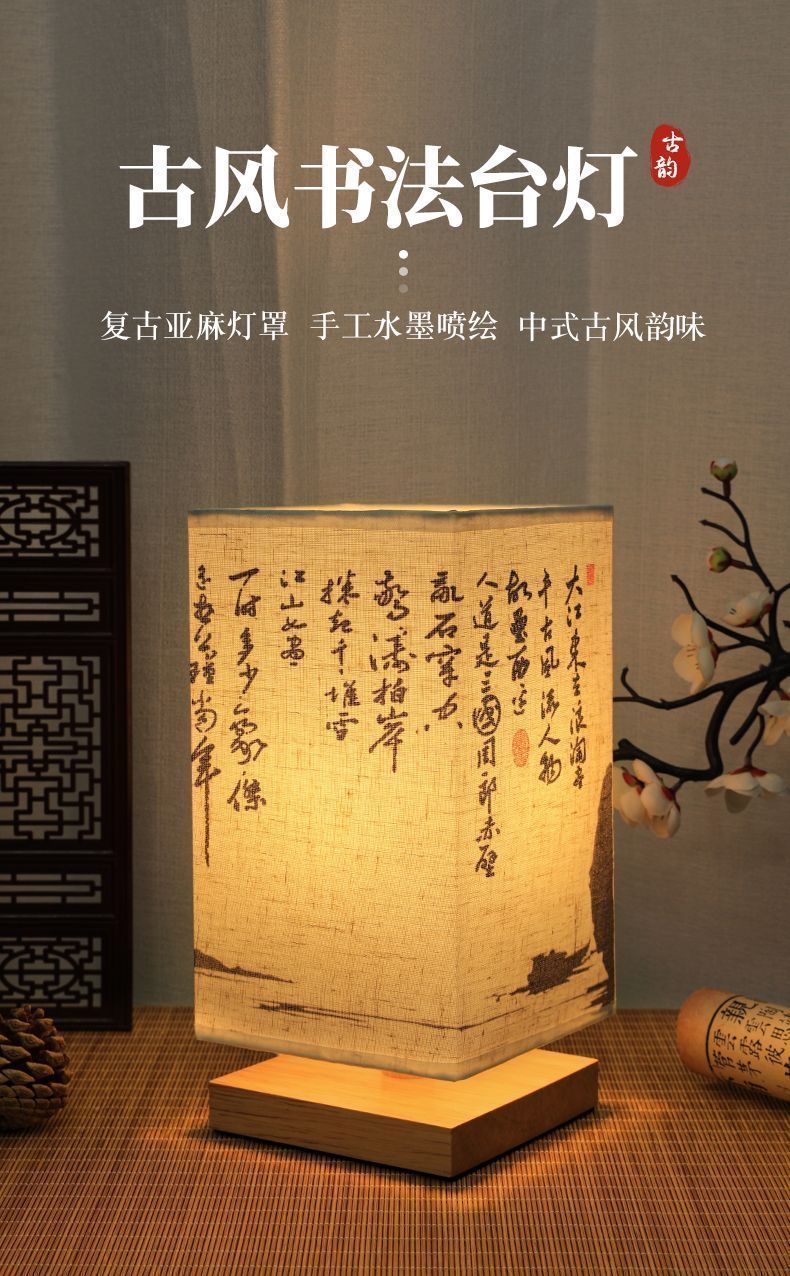 古风书法台灯
古韵
复古亚麻灯罩 手工水墨喷绘 中式古风韵味
大江東去浪淘尽
千古风流人物
故壘西边
人道是三國周郎赤壁
亂石穿空
驚濤拍岸
捲起千堆雪
江山如畫
一时多少豪傑
遥想公瑾當年